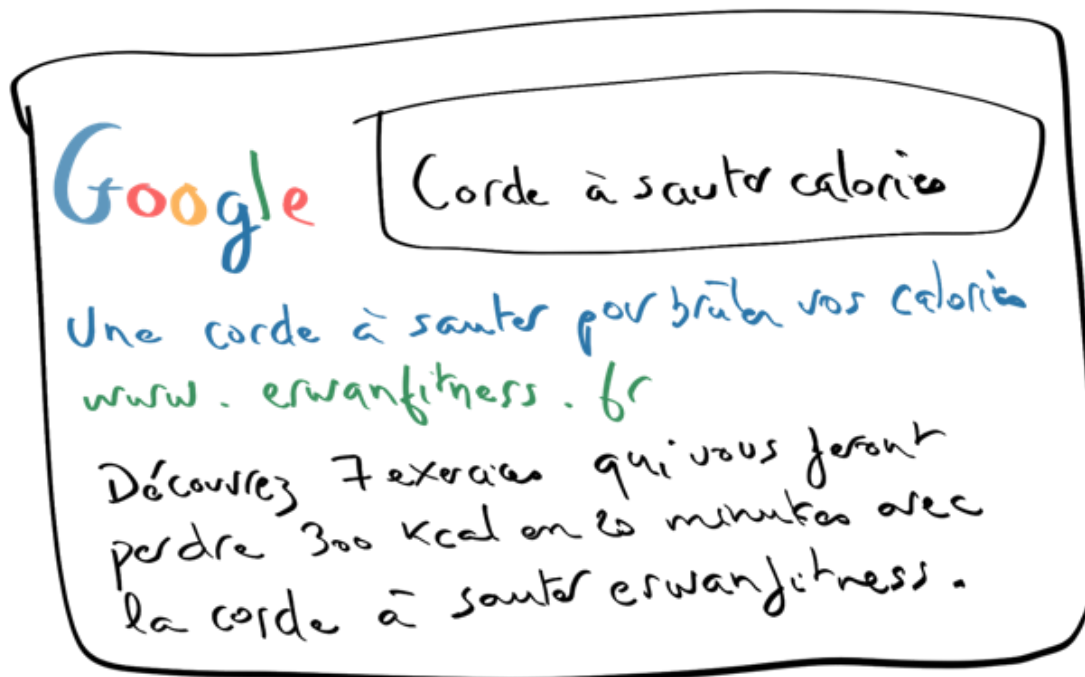 Google
Corde à sauter calories
Une corde à sauter pour brûler vos calories
www.erwanfitness.fr
Découvrez 7 exercices qui vous feront
perdre 300 Kcal en 20 minutes avec
la corde à sauter erwanfitness.